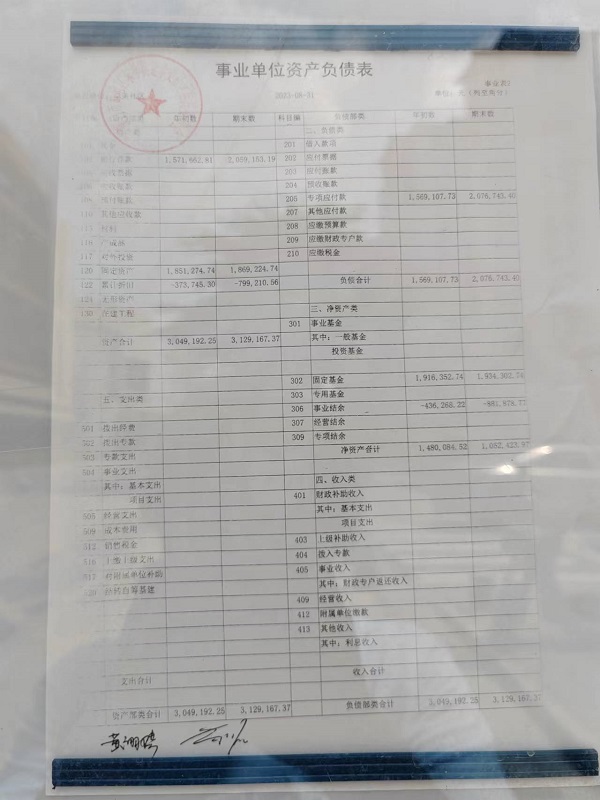 事业单位资产负债表
2023-08-31
单位：元（列至角分）
年初数 期末数 科目编 负债部类 年初数 期末数
二、负债类
201 借入款项
银行存款 1,571,662.81 2,059,153.19 202 应付票据
203 应付账款
应收账款 204 预收账款
预付账款 205 专项应付款 1,569,107.73 2,076,743.40
其他应收款 207 其他应付款
材料 208 应缴预算款
116 产成品 209 应缴财政专户款
117 对外投资 210 应缴税金
120 固定资产 1,851,274.74 1,869,224.74
122 累计折旧 -373,745.30 -799,210.56 负债合计 1,569,107.73 2,076,743.40
124 无形资产
130 在建工程 三、净资产类
301 事业基金
资产合计 3,049,192.25 3,129,167.37 其中：一般基金
投资基金
302 固定基金 1,916,352.74 1,934,302.74
303 专用基金
五、支出类 306 事业结余 -436,268.22 -881,878.77
307 经营结余
501 拨出经费 309 专项结余
502 拨出专款 净资产合计 1,480,084.52 1,052,423.97
503 专款支出
504 事业支出 四、收入类
其中：基本支出 401 财政补助收入
项目支出 其中：基本支出
505 经营支出 项目支出
509 成本费用 403 上级补助收入
512 销售税金 404 拨入专款
516 上缴上级支出 405 事业收入
517 对附属单位补助 其中：财政专户返还收入
520 结转自筹基建 409 经营收入
412 附属单位缴款
413 其他收入
其中：利息收入
收入合计
支出合计
资产部类合计 3,049,192.25 3,129,167.37 负债部类合计 3,049,192.25 3,129,167.37